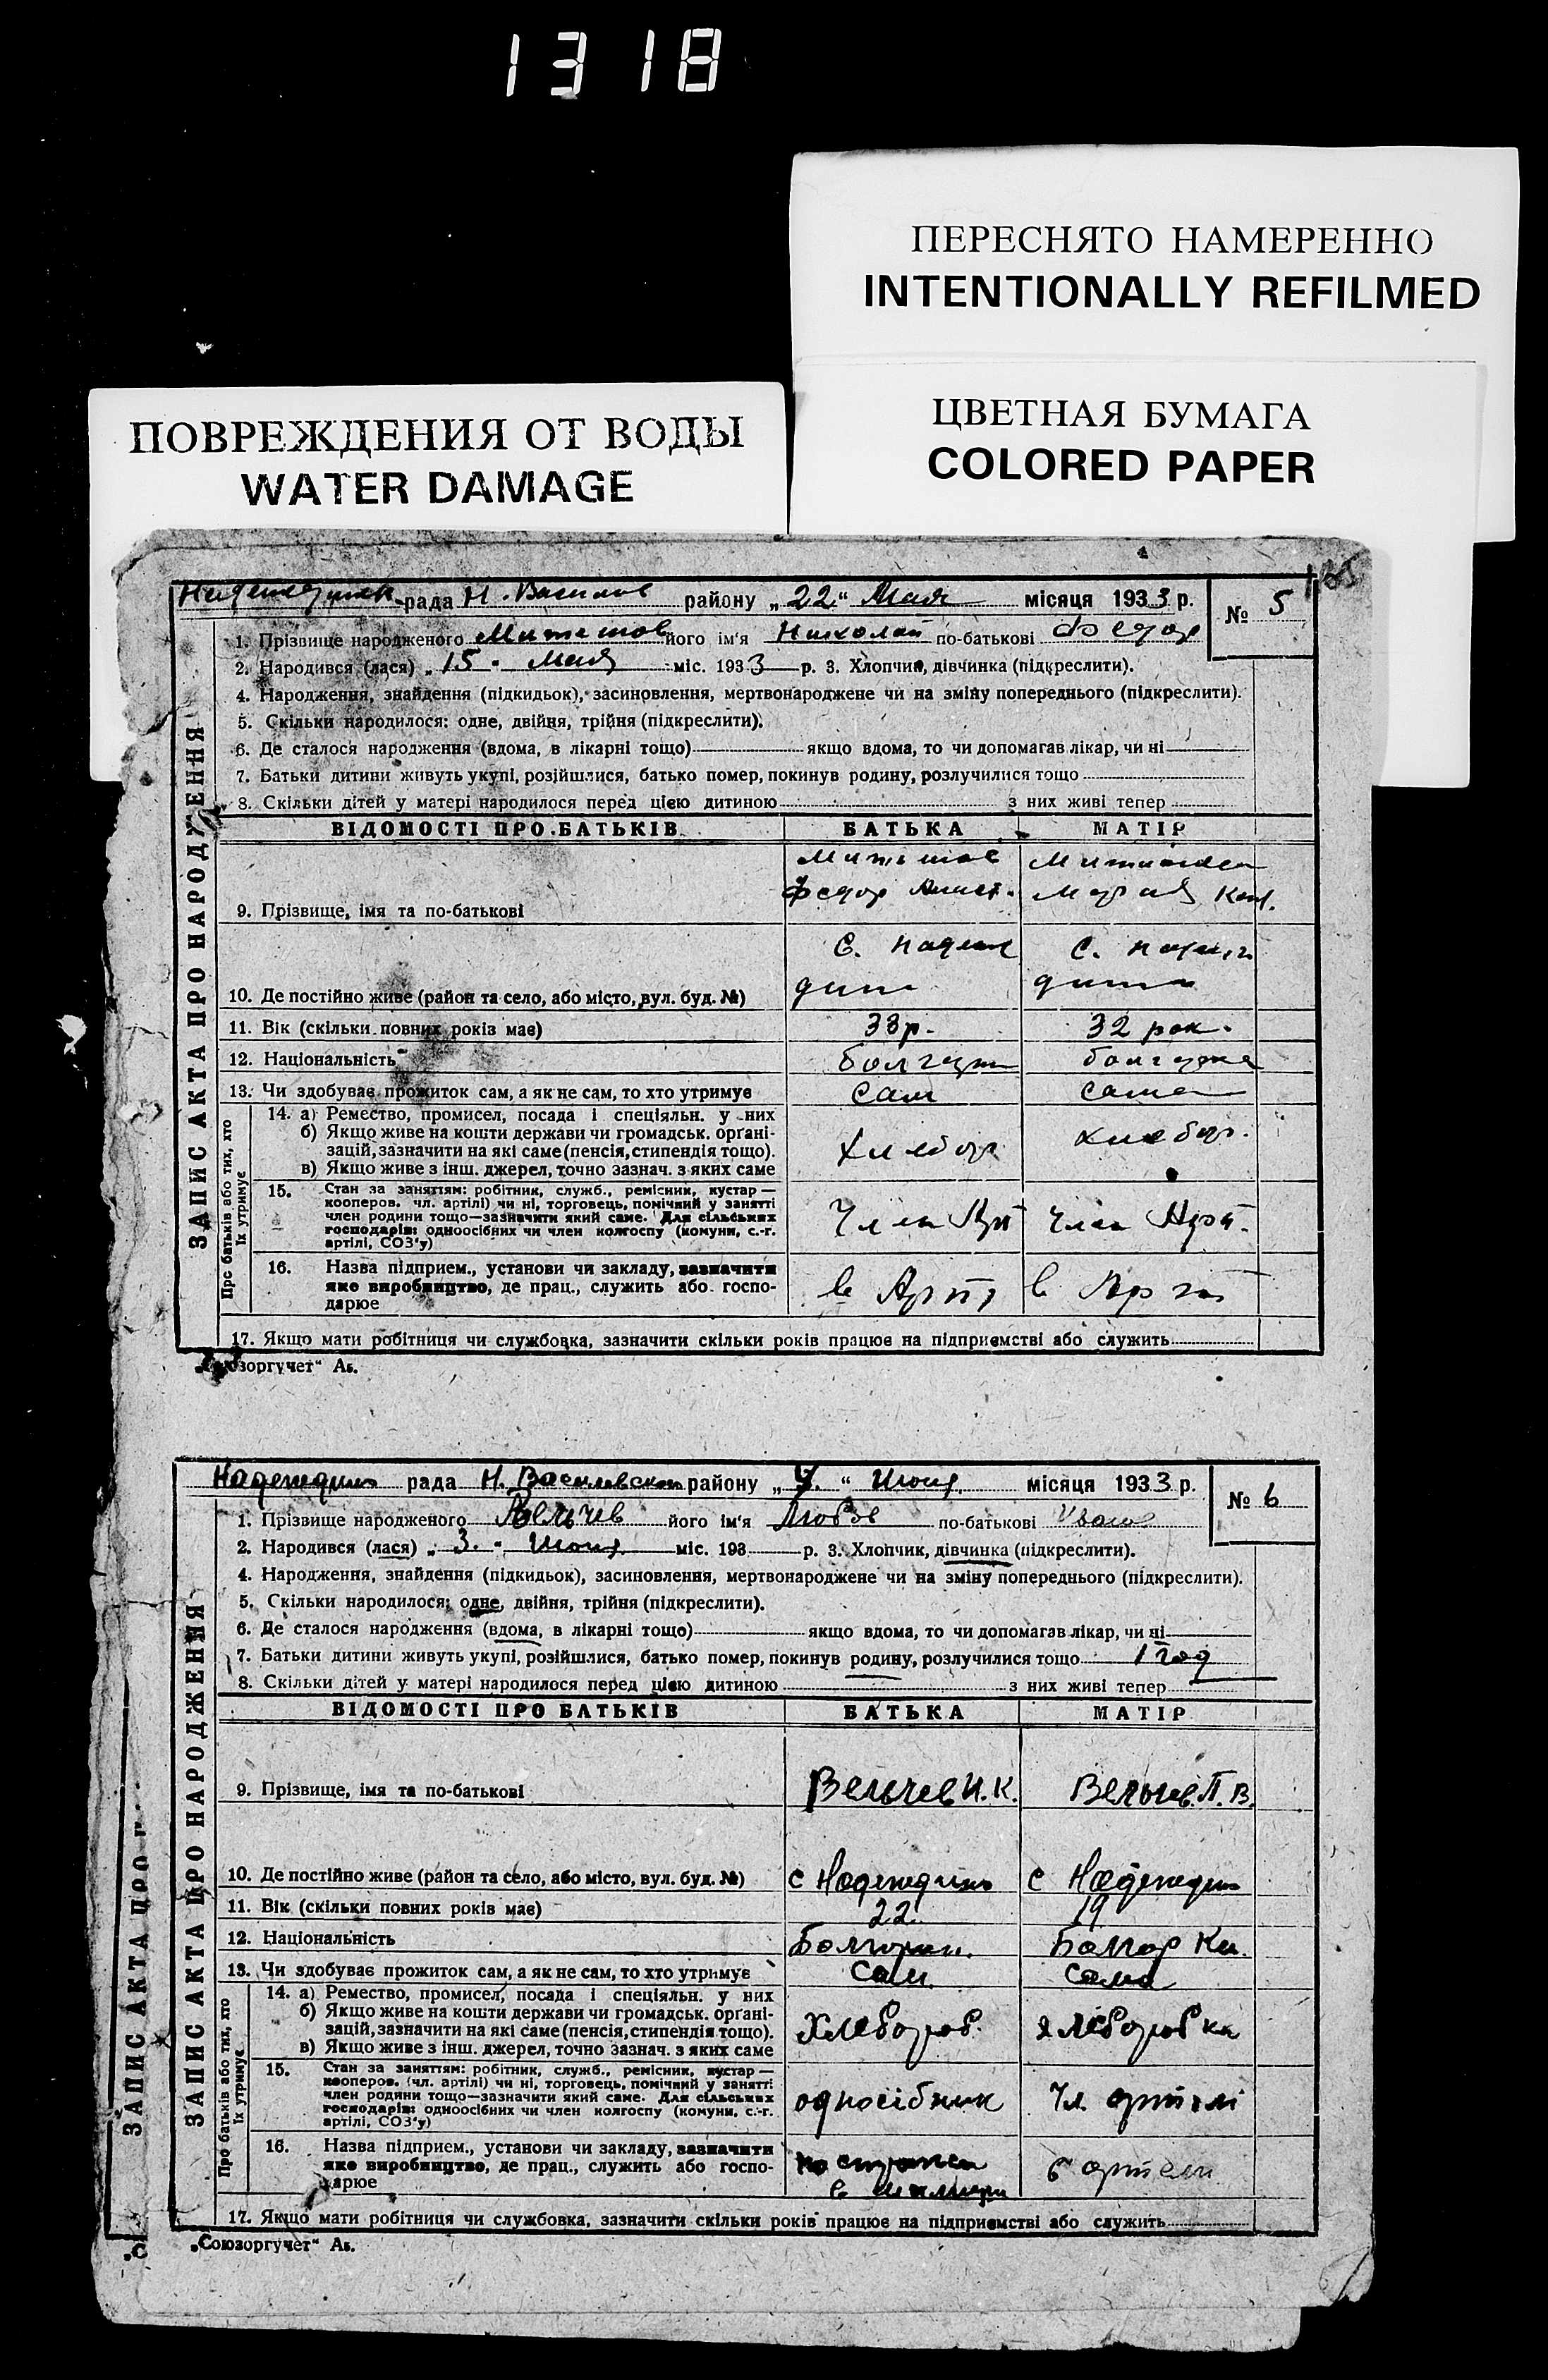 1318
ПЕРЕСНЯТО НАМЕРЕННО
INTENTIONALLY REFILMED
ЦВЕТНАЯ БУМАГА
COLORED PAPER
ПОВРЕЖДЕНИЯ ОТ ВОДЫ
WATER DAMAGE
рада Н. Васильев району „22“ Мая місяця 1933 р. № 5
1. Прізвище народженого його ім'я Николай по-батькові Федор
2. Народився (лася) „15“ Мая міс. 1933 р. 3. Хлопчик, дівчинка (підкреслити).
4. Народження, знайдення (підкидьок), засиновлення, мертвонароджене чи на зміну попереднього (підкреслити).
5. Скільки народилося: одне, двійня, трійня (підкреслити).
6. Де сталося народження (вдома, в лікарні тощо) якщо вдома, то чи допомагав лікар, чи ні
7. Батьки дитини живуть укупі, розійшлися, батько помер, покинув родину, розлучилися тощо
8. Скільки дітей у матері народилося перед цією дитиною з них живі тепер
ЗАПИС АКТА ПРО НАРОДЖЕННЯ
ВІДОМОСТІ ПРО БАТЬКІВ БАТЬКА МАТІР
9. Прізвище, імя та по-батькові
Федор Мария
10. Де постійно живе (район та село, або місто, вул. буд. №)
с. с.
11. Вік (скільки повних років має) 33 р. 32 рок.
12. Національність болгарин болгарка
13. Чи здобуває прожиток сам, а як не сам, то хто утримує сам сама
Про батьків або тих, хто їх утримує
14. а) Ремество, промисел, посада і спеціяльн. у них
б) Якщо живе на кошти держави чи громадськ. орґані-
зацій, зазначити на які саме (пенсія, стипендія тощо).
в) Якщо живе з інш. джерел, точно зазнач. з яких саме
Хлебор хлебор.
15. Стан за заняттям: робітник, служб., ремісник, кустар —
кооперов. чл. артілі) чи ні, торговець, помічний у занятті
член родини тощо—зазначити який саме. Для сільських
господарів: одноосібних чи член колгоспу (комуни, с.-г.
артілі, СОЗ'у)
Член Арт член Арт.
16. Назва підприєм., установи чи закладу, зазначити
яке виробництво, де прац., служить або госпо-
дарює
в Арт в Арт
17. Якщо мати робітниця чи службовка, зазначити скільки років працює на підприємстві або служить
„Союзоргучет“ Аз.
Надеждин рада Н. Василевском району „7.“ Июня місяця 1933 р. № 6
1. Прізвище народженого Вельчев його ім'я Любов по-батькові Ивано
2. Народився (лася) „3.“ Июня міс. 193 р. 3. Хлопчик, дівчинка (підкреслити).
4. Народження, знайдення (підкидьок), засиновлення, мертвонароджене чи на зміну попереднього (підкреслити).
5. Скільки народилося: одне, двійня, трійня (підкреслити).
6. Де сталося народження (вдома, в лікарні тощо) якщо вдома, то чи допомагав лікар, чи ні
7. Батьки дитини живуть укупі, розійшлися, батько помер, покинув родину, розлучилися тощо 1 год
8. Скільки дітей у матері народилося перед цією дитиною з них живі тепер
ЗАПИС АКТА ПРО НАРОДЖЕННЯ
ВІДОМОСТІ ПРО БАТЬКІВ БАТЬКА МАТІР
9. Прізвище, імя та по-батькові Вельчев И. К. Вельчев. П. В.
10. Де постійно живе (район та село, або місто, вул. буд. №) с Надеждино с Надеждин
11. Вік (скільки повних років має) 22. 19
12. Національність Болгарин. Болгар Ки.
13. Чи здобуває прожиток сам, а як не сам, то хто утримує сам сама
Про батьків або тих, хто їх утримує
14. а) Ремество, промисел, посада і спеціяльн. у них
б) Якщо живе на кошти держави чи громадськ. орґані-
зацій, зазначити на які саме (пенсія, стипендія тощо).
в) Якщо живе з інш. джерел, точно зазнач. з яких саме
Хлебороб. Хлеборобка
15. Стан за заняттям: робітник, служб., ремісник, кустар —
кооперов. (чл. артілі) чи ні, торговець, помічний у занятті
член родини тощо—зазначити який саме. Для сільських
господарів: одноосібних чи член колгоспу (комуни, с.-г.
артілі, СОЗ'у)
односібник Чл. артілі
16. Назва підприєм., установи чи закладу, зазначити
яке виробництво, де прац., служить або госпо-
дарює
в артели
17. Якщо мати робітниця чи службовка, зазначити скільки років працює на підприємстві або служить
„Союзоргучет“ Аз.
ЗАПИС АКТА ПРО